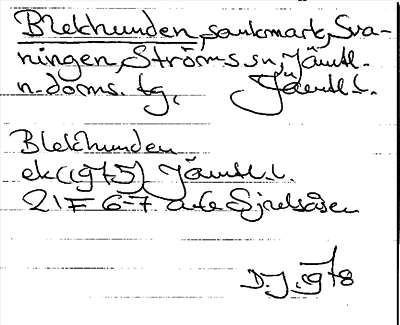 Blekhunden, sankmark, Sva-
ningen, Ströms sn, Jämtl.
n. doms. tg, Jämtl. l.
Blekhunden
ek (1975) Jämtl. l.
21F 6-7
D.J. 1978